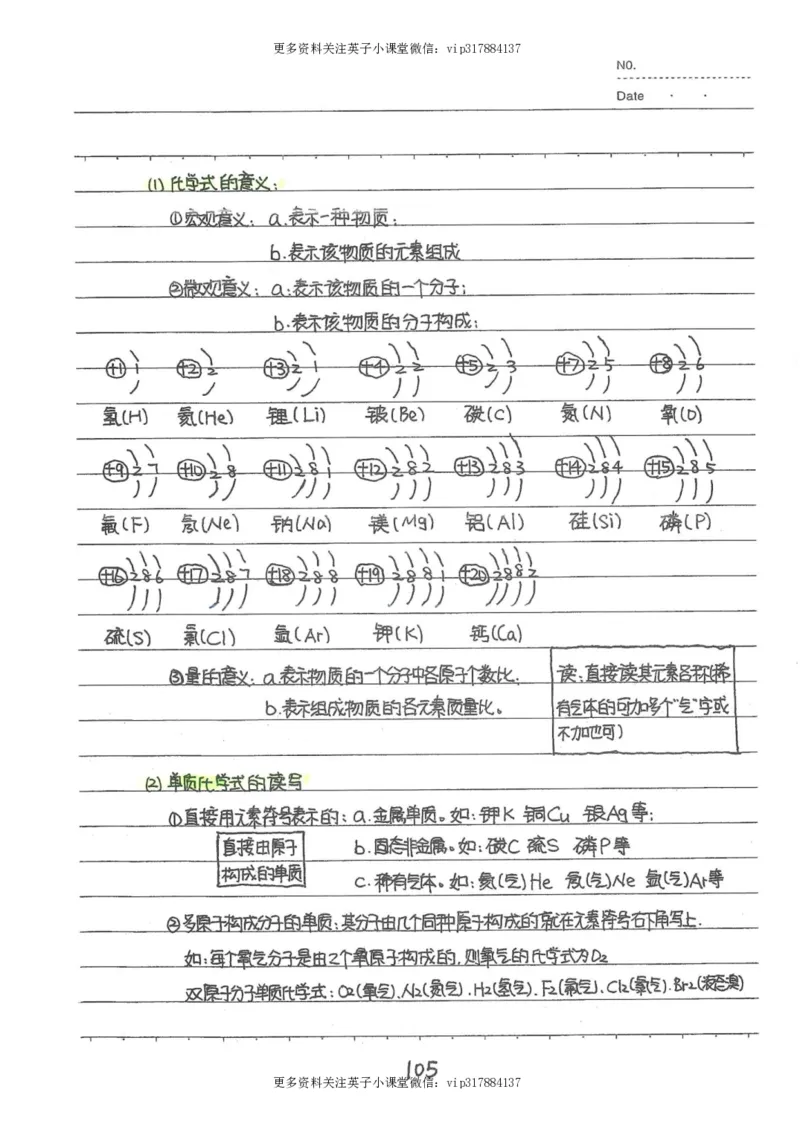 更多资料关注英子小课堂微信：vip317884137
NO.
Date · ·
(1) 化学式的意义：
①宏观意义：a.表示一种物质；
b.表示该物质的元素组成
②微观意义：a.表示该物质的一个分子；
b.表示该物质的分子构成；
+1 1 +2 2 +3 2 1 +4 2 2 +5 2 3 +7 2 5 +8 2 6
氢(H) 氦(He) 锂(Li) 铍(Be) 碳(C) 氮(N) 氧(O)
+9 2 7 +10 2 8 +11 2 8 1 +12 2 8 2 +13 2 8 3 +14 2 8 4 +15 2 8 5
氟(F) 氖(Ne) 钠(Na) 镁(Mg) 铝(Al) 硅(Si) 磷(P)
+16 2 8 6 +17 2 8 7 +18 2 8 8 +19 2 8 8 1 +20 2 8 8 2
硫(S) 氯(Cl) 氩(Ar) 钾(K) 钙(Ca)
③量的意义：a.表示物质的一个分子中各原子个数比；
b.表示组成物质的各元素质量比。
读：直接读其元素名称(稀
有气体的可加多个“气”字或
不加也可)
(2) 单质化学式的读写
①直接用元素符号表示的：a.金属单质。如：钾K 铜Cu 银Ag等；
直接由原子
构成的单质
b.固态非金属。如：碳C 硫S 磷P等
c.稀有气体。如：氦(气)He 氖(气)Ne 氩(气)Ar等
②多原子构成分子的单质：其分子由几个同种原子构成的就在元素符号右下角写上.
如：每个氧气分子是由2个氧原子构成的，则氧气的化学式为O₂
双原子分子单质化学式：O₂(氧气).N₂(氮气).H₂(氢气).F₂(氟气).Cl₂(氯气).Br₂(液态溴)
105
更多资料关注英子小课堂微信：vip317884137